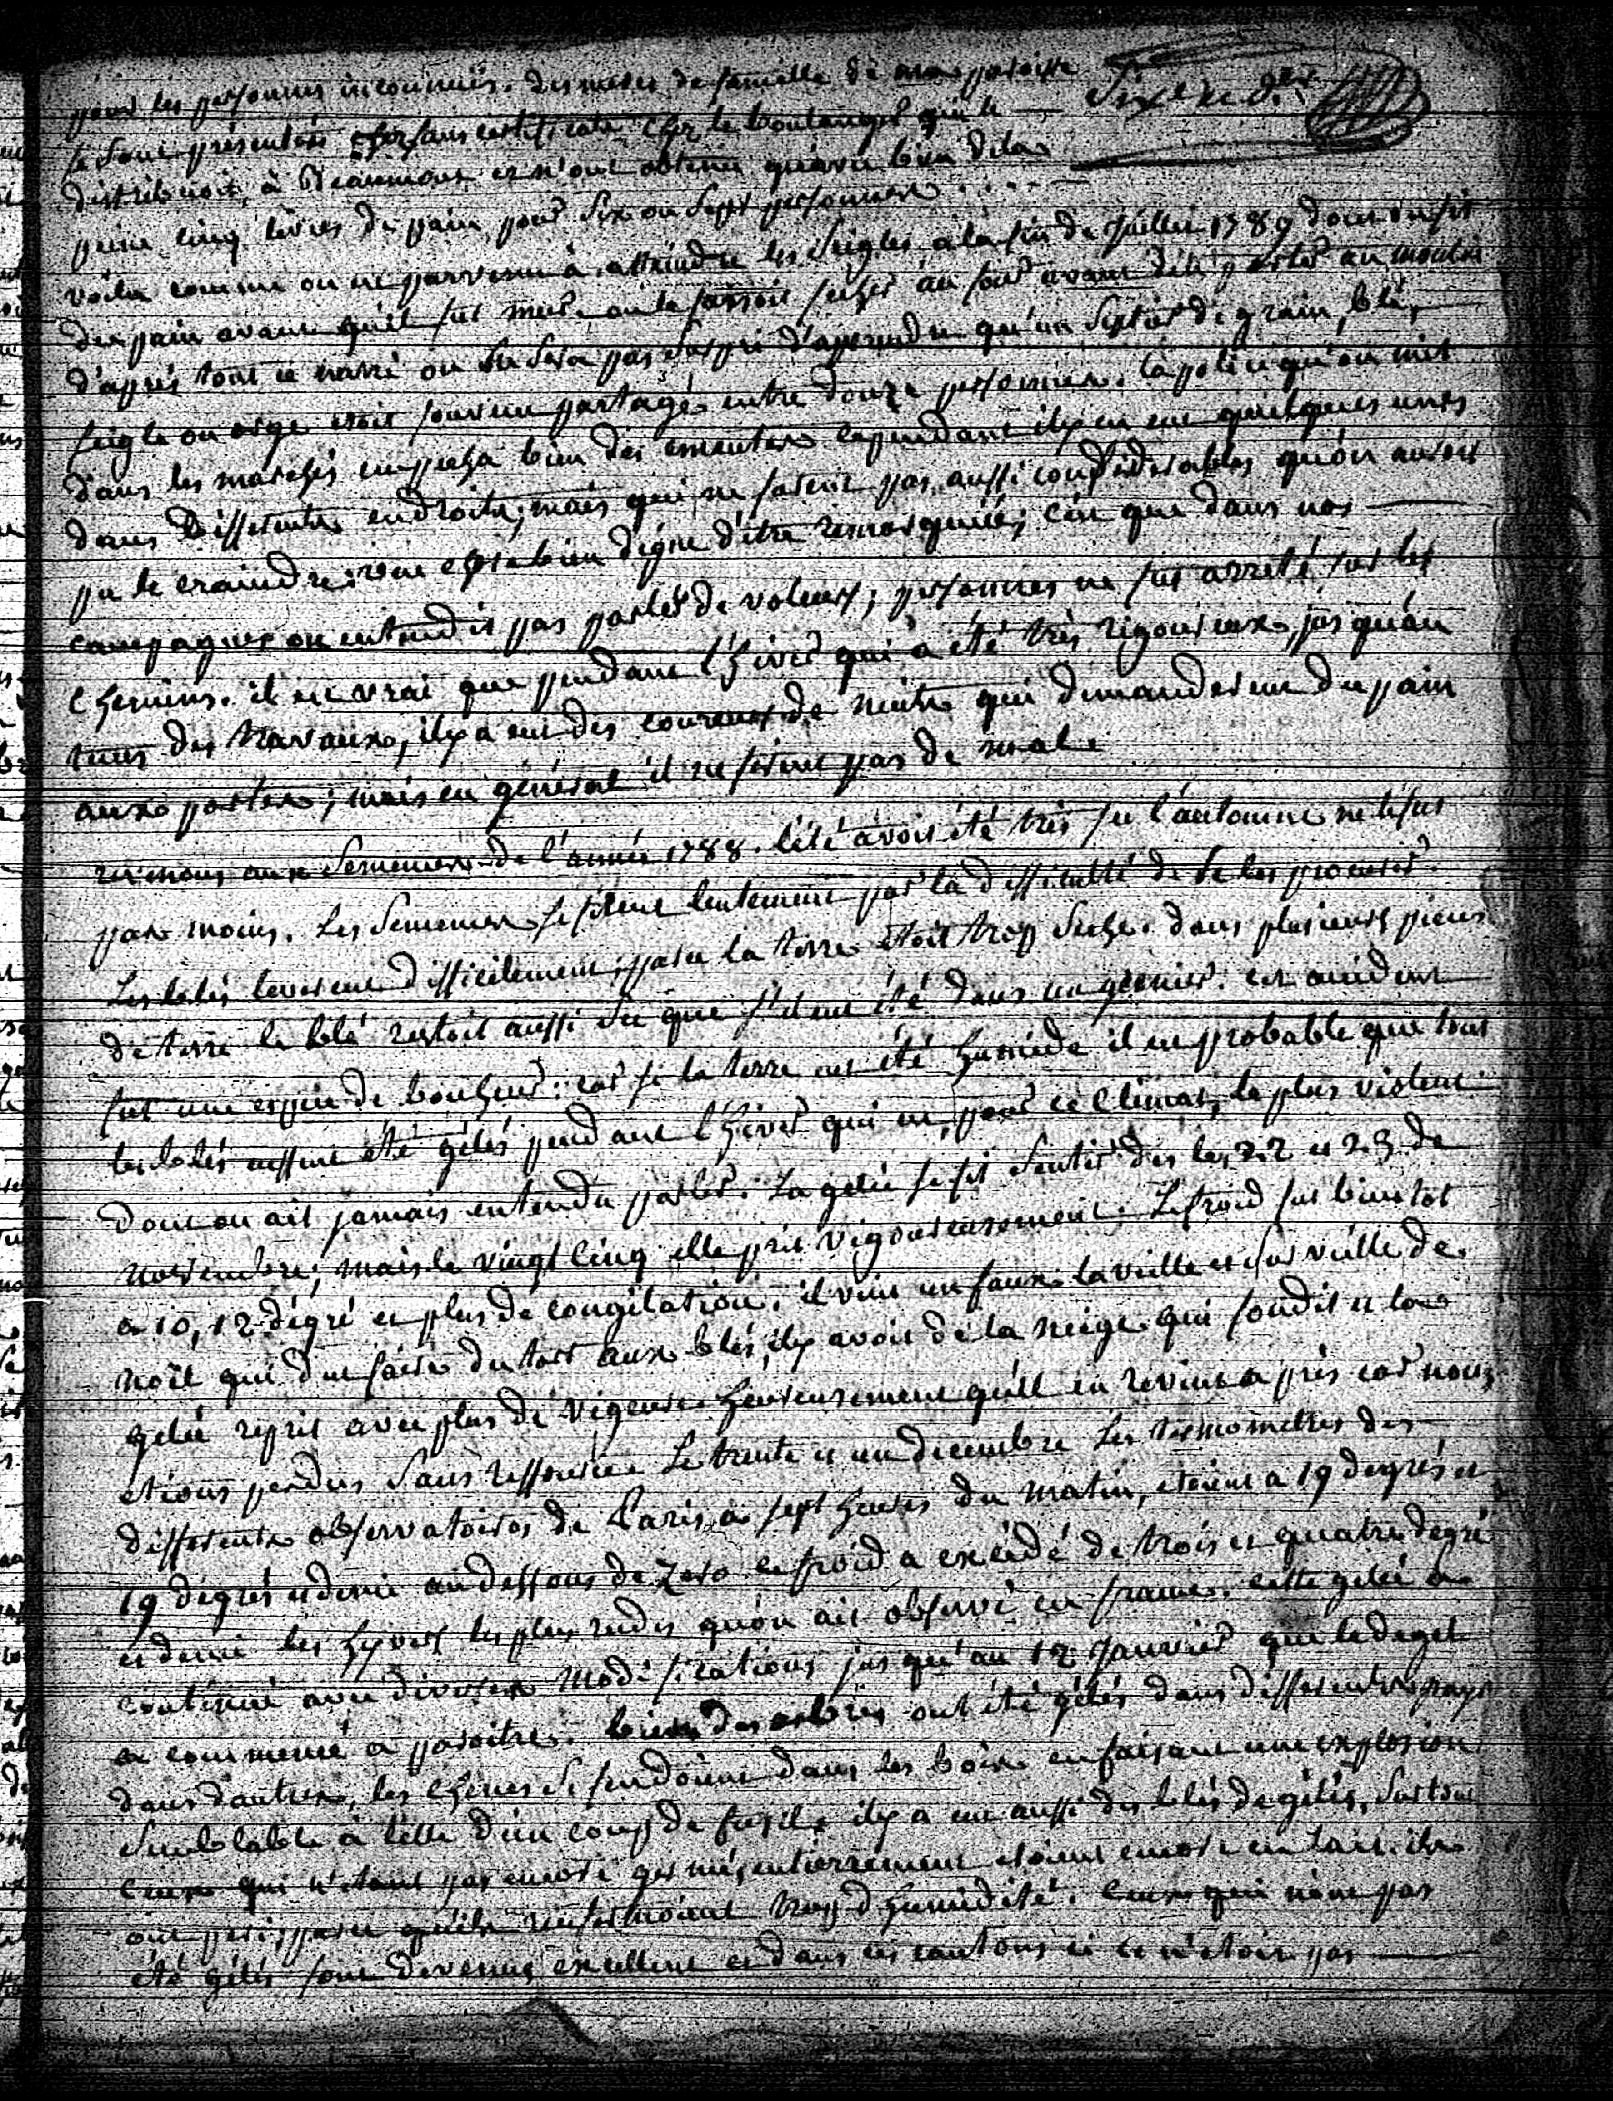 pour les personnes inconnuës. des meres de famille de ma paroisse
se sont présentées sans certificats chez le boulanger qui le
Sixieme d.er
distribuoit, à Beaumont et n'ont obtenu qu'avec bien de la
peine cinq livres de pain pour six ou sept personnes . . . .
voila comme on est parvenu à atteindre les seigles, a la fin de Juillet 1789 dont on fit
du pain avant qu'il fut mur. on le faisoit secher au four avant de le porter au moulin
d'aprés tout ce narré on ne sera pas surpris d'apprendre qu'un septier de grain, blé,
seigle ou orge etoit souvent partagé entre douze personnes. la police qu'on mit
dans les marchés empecha bien des emeutes cependant il y en eut quelques unes
dans differents endroits; mais qui ne furent pas aussi considerables qu'on auroit
pu le craindre. une chose bien digne d'être remarquée, c'est que dans nos
campagnes on entendit pas parler de voleurs; personnes ne fut arreté sur les
chemins. il est vrai que pendant l'hiver qui a été très rigoureux, jusqu'au
tems des travaux, il y a eut des coureurs de nuits qui demanderent du pain
aux portes; mais en géneral il ne firent pas de mal.
revenons aux semences de l'année 1788. l'été avoit été très sec l'automne ne le fut
pas moins. Les semences se firent lentement par la difficulté de se les procurer.
Les blés leverent difficilement, parce la terre étoit trop seche. dans plusieurs pieces
de terre le blé restoit aussi sec que s'il eut été dans un grenier. cet accident
fut une espece de bonheur: car si la terre eut été humide il est probable que tous
les blés eussent été gelés pendant l'hiver qui est, pour ce climat, le plus violent
dont on ait jamais entendu parler. La gelée se fit sentir dés les 22 et 23 de
novembre; mais le vingt cinq elle prit vigoureusement. Le froid fut bientot
a 10, 12 dégré et plus de congélation. il vint un faux la veille et surveille de
noël qui dut faire du tort aux blés, il y avoit de la neige qui fondit et la
gelée reprit avec plus de vigueur. heureusement qu'il en revint après car nous
etions perdus sans ressource. Le trente et un decembre les termometres des
differents observatoires de Paris a sept heures du matin, etoient a 19 degrés et
19 dégrés et demi au dessous de Zero ce froid a exédé de trois et quatre degré
et demi les hyvers les plus rudes qu'on ait observé en france. cette gelée a
continué avec diverses modifications jusqu'au 12 Janvier que le degel
a commencé a paroitre. bien des arbres ont été gelés dans differents pays
dans d'autres, les chênes se fendoient dans les bois en faisant une explosion
semblable à celle d'un coup de fusil. il y a eu aussi des blés de gélés, surtout
ceux qui n'etant pas encore germés, entierrement etoient encore en lait. ils
ont peri, parce qu'ils renfermoient trop d'humidité. Ceux qui n'ont pas
été gélés sont devenus excellent et dans ces cantons ci ce n'etoit pas